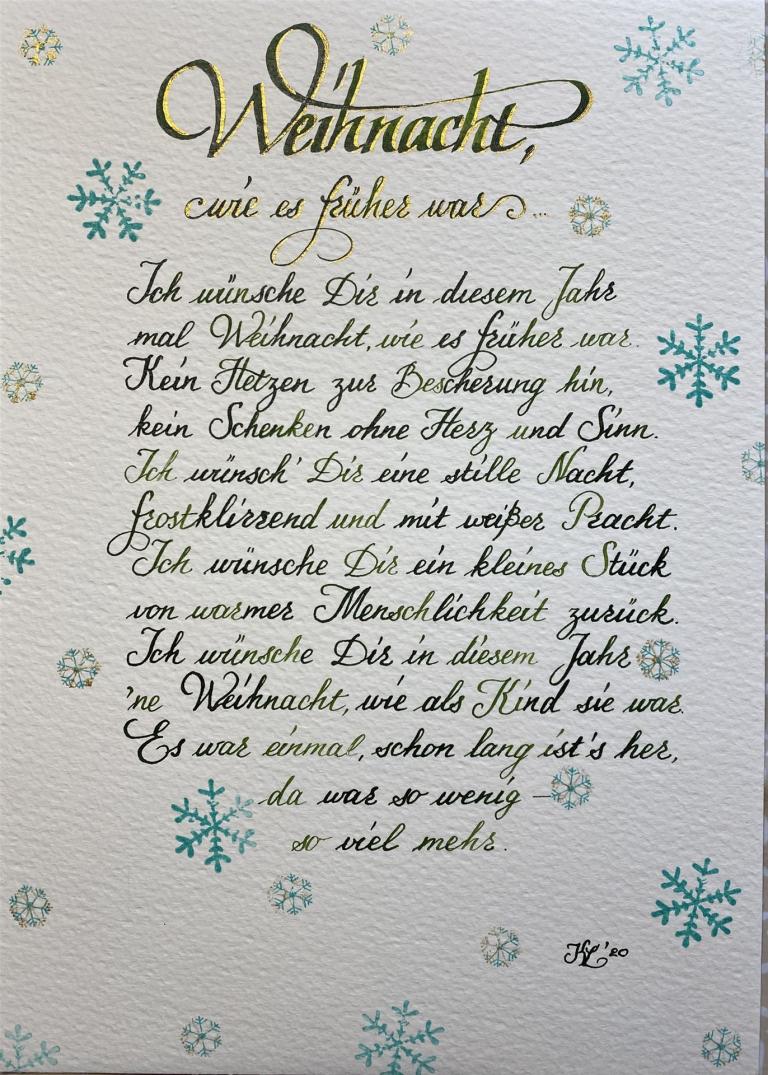 Weihnacht,
wie es früher war...
Ich wünsche Dir in diesem Jahr
mal Weihnacht, wie es früher war.
Kein Hetzen zur Bescherung hin,
kein Schenken ohne Herz und Sinn.
Ich wünsch' Dir eine stille Nacht,
frostklirrend und mit weißer Pracht.
Ich wünsche Dir ein kleines Stück
von warmer Menschlichkeit zurück.
Ich wünsche Dir in diesem Jahr
'ne Weihnacht, wie als Kind sie war.
Es war einmal, schon lang ist's her,
da war so wenig –
so viel mehr.
KL '20